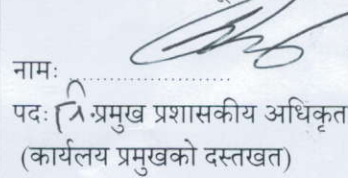 नामः ........................
पदः नि.प्रमुख प्रशासकीय अधिकृत
(कार्यलय प्रमुखको दस्तखत)